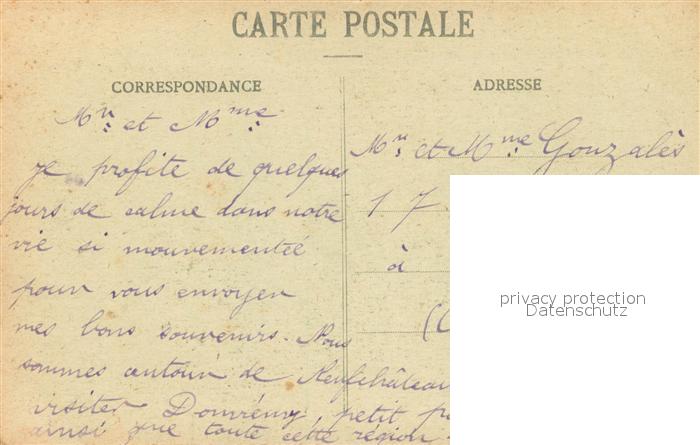 CARTE POSTALE
CORRESPONDANCE
ADRESSE
Mr et Mme
je profite de quelques
jours de calme dans notre
vie si mouvementée
pour vous envoyer
mes bons souvenirs. Nous
sommes autour de Neufchâteau
visiter Domrémy, petit
ainsi que toute cette région
Mr et Mme Gonzalès
17
à
privacy protection
Datenschutz